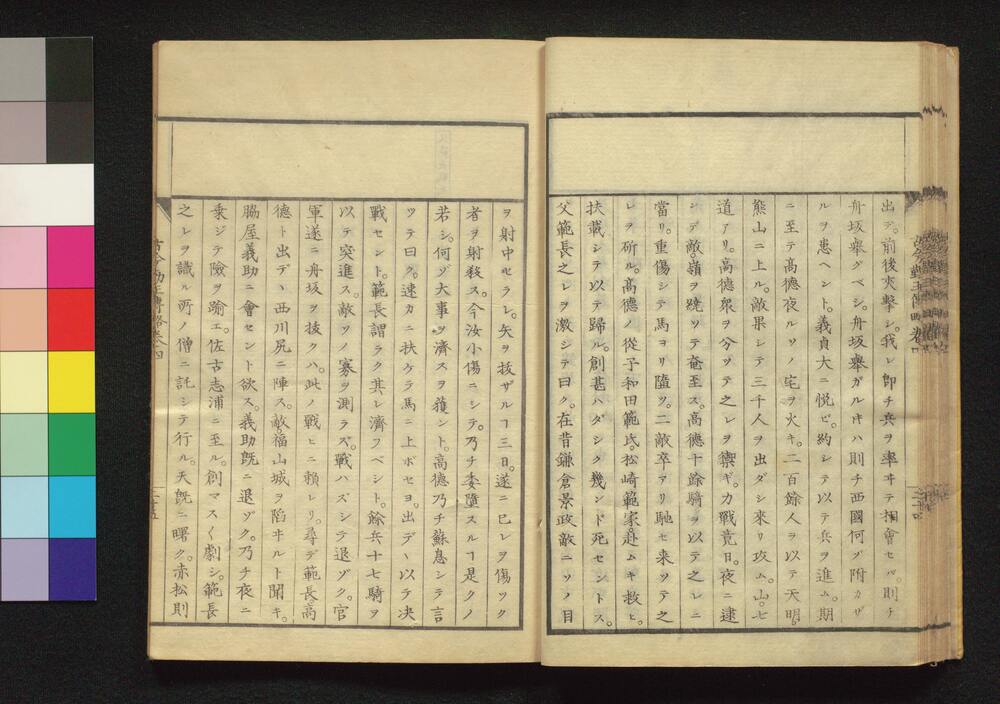 出デ。前後夾撃シ。我レ卽チ兵ヲ率ヰテ相會セバ。則チ
舟坂擧グベシ。舟坂擧ガルヰハ則チ西國何ゾ附カザ
ルヲ患ヘント。義貞大ニ悦ビ。約シテ以テ兵ヲ進ム。期
ニ至テ高德夜ル其ノ宅ヲ火キ。二百餘人ヲ以テ天明。
熊山ニ上ル。敵果シテ三千人ヲ出ダシ來リ攻ム。山ニ七
道アリ。高德衆ヲ分ツテ之レヲ禦ギ。力戰竟日。夜ニ逮
ンデ敵。嶺ヲ繞ツテ奄至ス。高德十餘騎ヲ以テ之レニ
當リ。重傷シテ馬ヨリ隨ツ。二敵卒アリ馳セ来ツテ之
レヲ斫ル。高德ノ從子和田範氏。松崎範家。赴ムキ救ヒ。
扶載シテ以テ歸ル。創甚ハダシク幾ンド死セントス。
父範長之レヲ激シテ曰ク。在昔鎌倉景政敵ニソノ目
ヲ射中セラレ。矢ヲ抜ザルヿ三日。遂ニ已レヲ傷ツク
者ヲ射殺ス。今汝小傷ニシテ。乃チ委墮スルヿ是クノ
若シ。何ゾ大事ヲ濟スヲ獲ント。高德乃チ蘇息シテ言
ツテ曰ク。速カニ扶ケテ馬ニ上ボセヨ。出デヽ以テ決
戰セント。範長謂ラク其レ濟フベシト。餘兵十七騎ヲ
以テ突進ス。敵ソノ寡ヲ測ラズ。戰ハズシテ退ゾク。官
軍遂ニ舟坂ヲ抜クハ。此ノ戰ヒニ賴レリ。尋デ範長高
德ト出デヽ西川尻ニ陣ス。敵。福山城ヲ陷ヰルト聞キ。
脇屋義助ニ會セント欲ス。義助既ニ退ゾク。乃チ夜ニ
乘ジテ險ヲ踰エ。佐古志浦ニ至ル。創マスく劇シ。範長
之レヲ識ル所ノ僧ニ託シテ行ル。天既ニ曙ク。赤松則
古今勤王傳略卷四